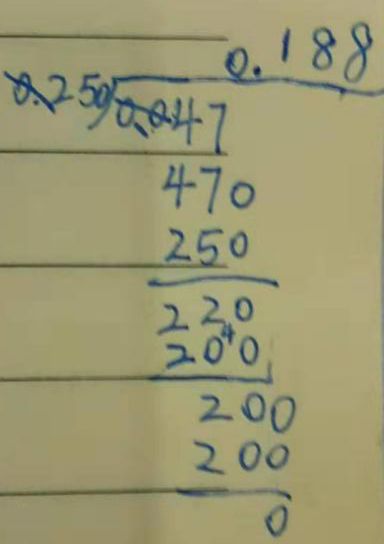 0.188
0.250)0.047
470
250
220
200
200
200
0